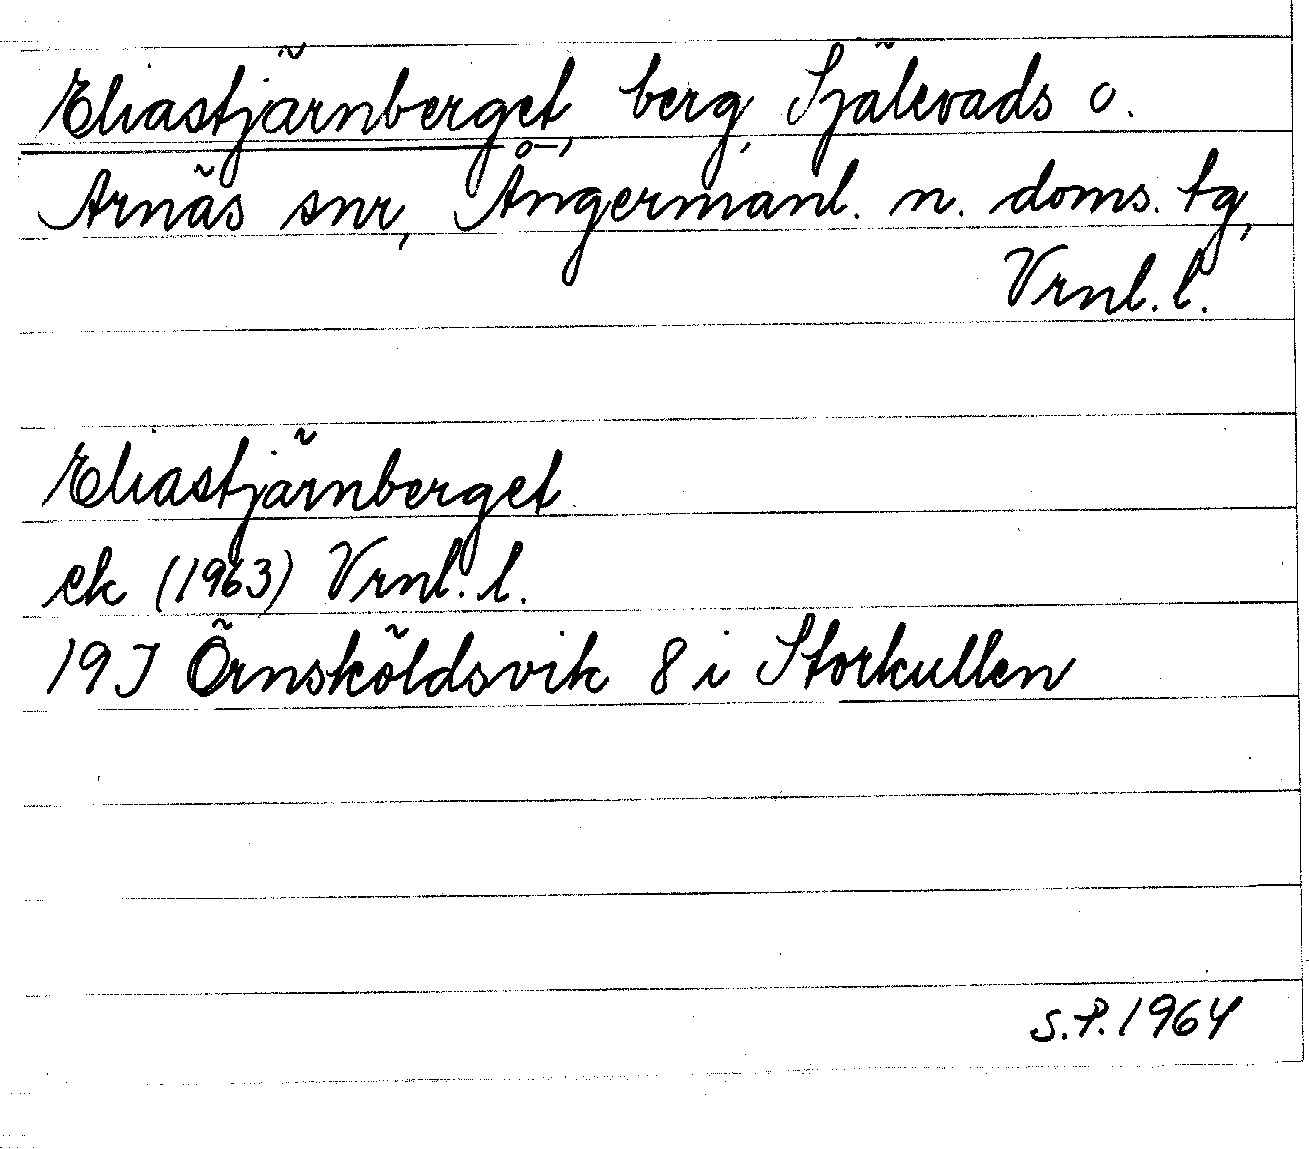 Eliastjärnberget, berg, Själevads o.
Arnäs snr, Ångermanl. n. doms. tg,
Vrnl. l.
Eliastjärnberget
ek (1963) Vrnl. l.
19J Örnsköldsvik 8 i Storkullen
S.P. 1964